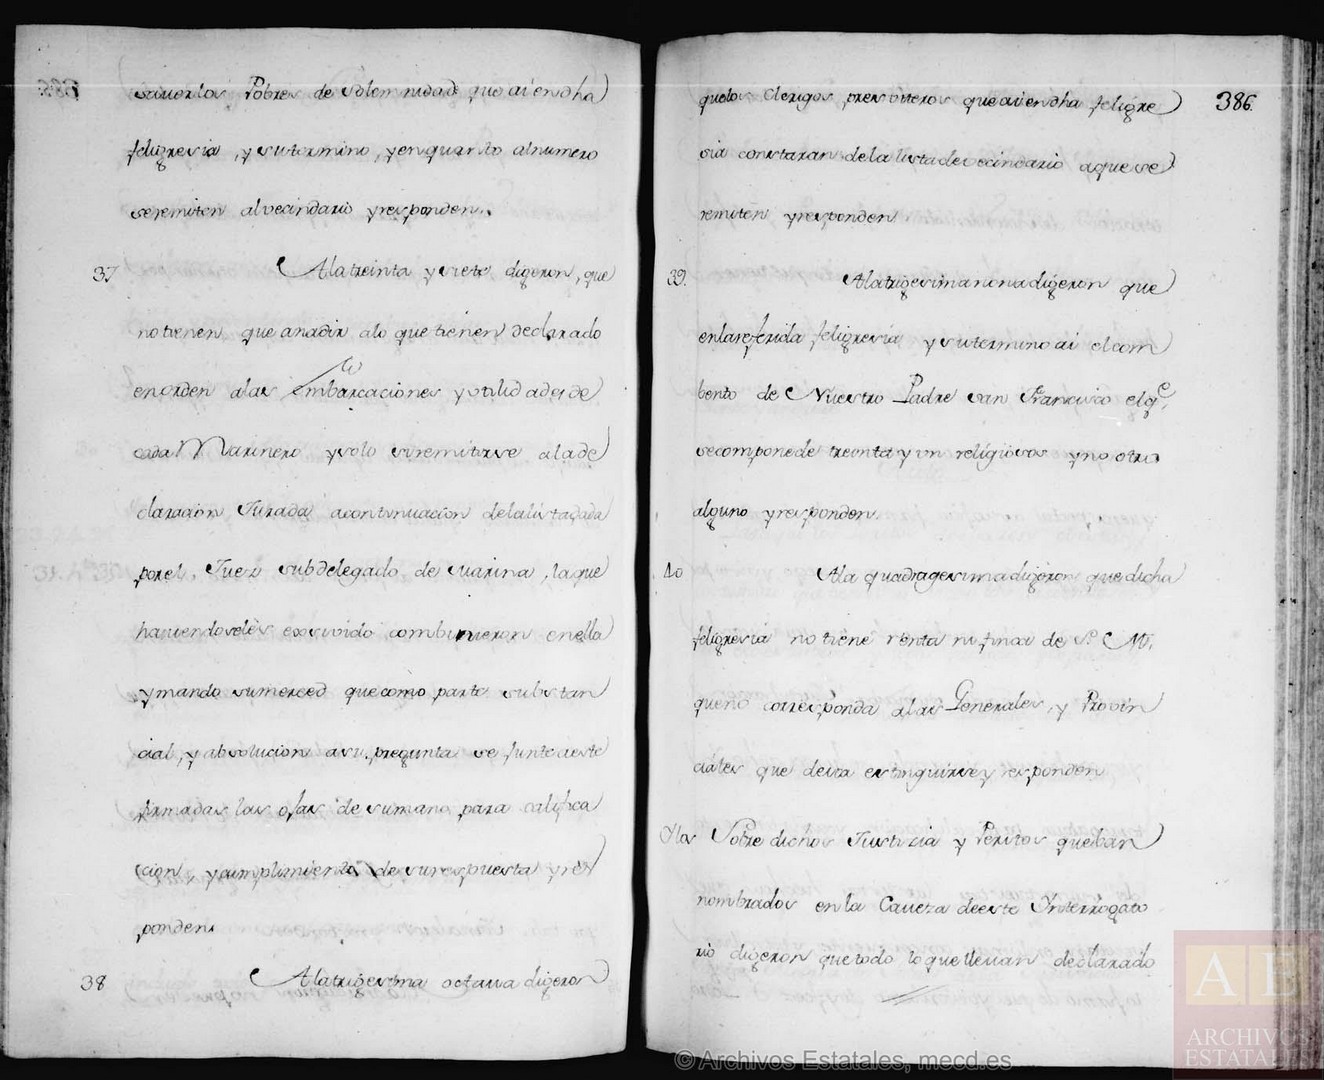 los Pobres de Solemnidad que ai en dha
feligresia, y su termino, y en quanto al numero
se remiten al vecindario y responden.
37 A la treinta y siete digeron, que
no tienen que anadir a lo que tienen declarado
en orden a las embarcaciones y utilidades de
cada Marinero y solo si remitirse a la de
claracion Jurada a continuacion de la lista dada
por el Juez subdelegado de Marina, la que
haviendoseles exsivido combinieron en ella
y mando su merced que como parte substan
cial, y absolucion a su pregunta se junte a este
firmadas las ojas de su mano para califica
cion y cumplimiento de su respuesta y res
ponden
38 A la trigesima octava digeron
que los Clerigos presviteros que ai en dha feligre
sia constaran de la lista de vecindario a que se
remiten y responden
386.
39. A la trigesima nona digeron que
en la referida feligresia y su termino ai el com
bento de Nuestro Padre san Francisco el qe.
se compone de treinta y un religiosos y no otro
alguno y responden.
40 A la quadragesima digeron que dicha
feligresia no tiene renta ni finca de S. M.
que no corresponda a las Generales, y Provin
ciales que deva estinguirse y responden
Y los sobre dichos Justicia y Peritos que ban
nombrados en la Caveza de este Ynterrogato
rio digeron que todo lo que llevan declarado
© Archivos Estatales, mecd.es
AE
ARCHIVOS
ESTATALES